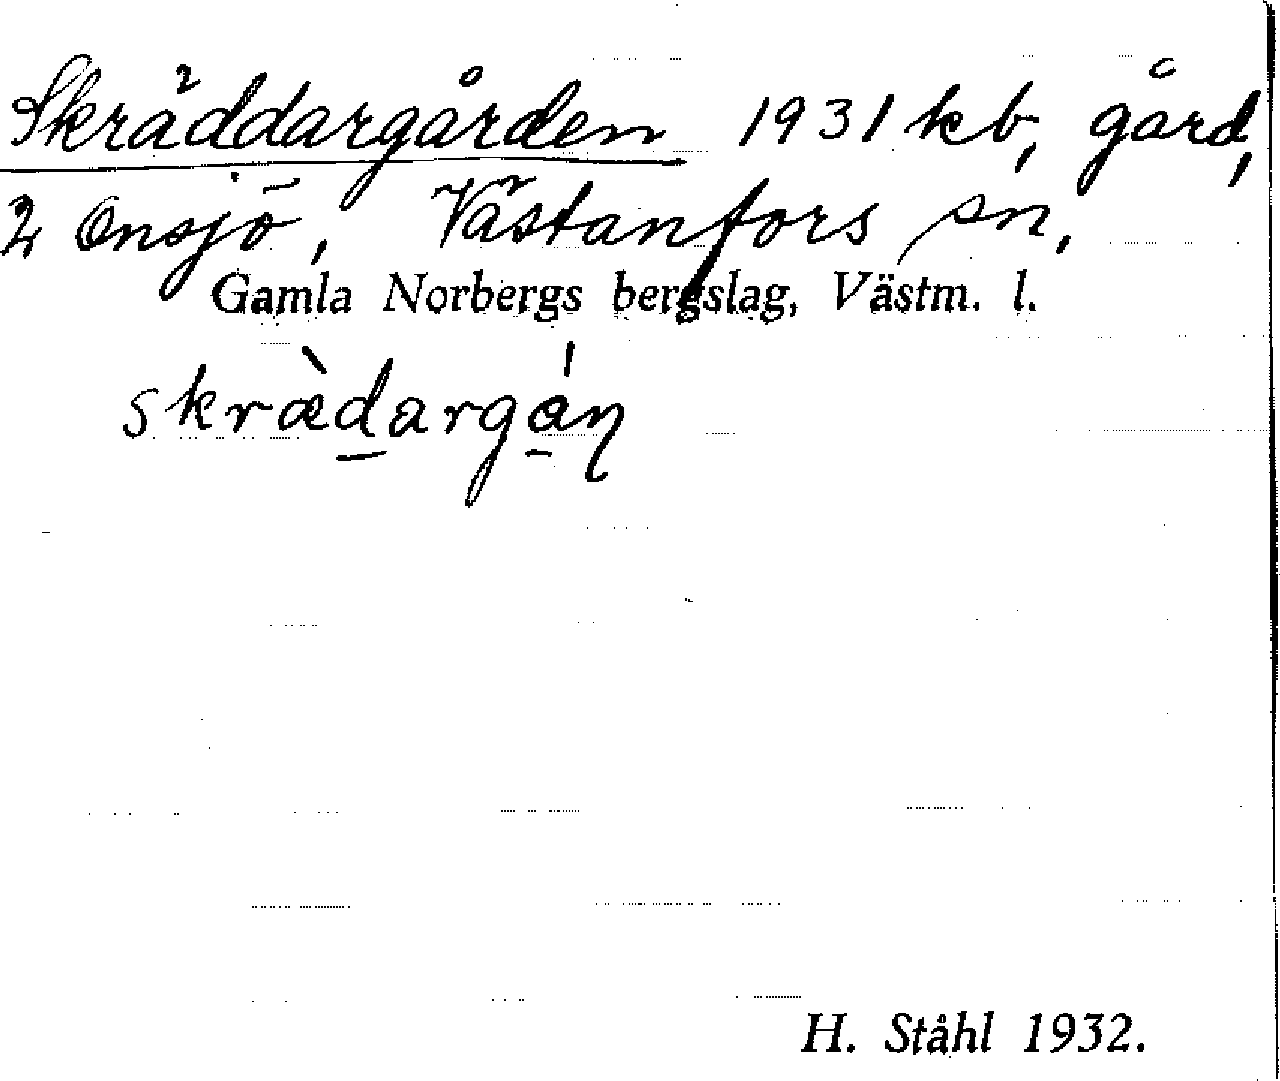 Skräddargården 1931 kb, gård,
2 Onsjö, Västanfors sn,
Gamla Norbergs bergslag, Västm. l.
skræ̀d̲argá̲ɳ
H. Ståhl 1932.